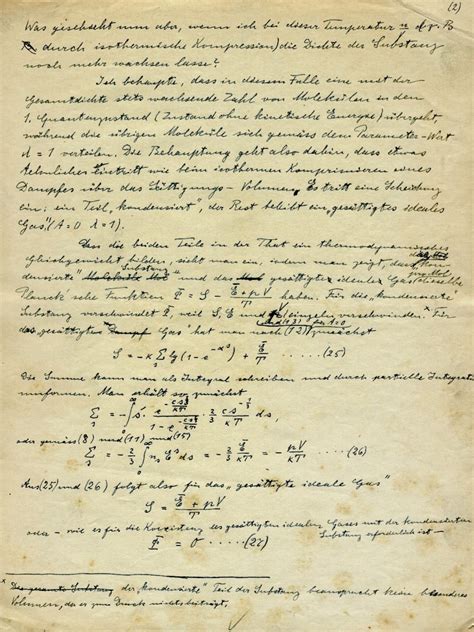 (2)
Was geschieht nun aber, wenn ich bei dieser Temperatur
durch isothermische Kompression) die Dichte der Substanz
noch mehr wachsen lasse?
Ich behaupte, dass in diesem Falle eine mit der
Gesamtdichte stets wachsende Zahl von Molekülen in den
1. Quantenzustand (Zustand ohne kinetische Energie) übergeht,
während die übrigen Moleküle sich gemäss dem Parameter-Wert
λ = 1 verteilen. Die Behauptung geht also dahin, dass etwas
Aehnliches eintritt wie beim isothermen Komprimieren eines
Dampfes über das Sättigungs-Volumen. Es tritt eine Scheidung
ein; ein Teil "kondensiert", der Rest bleibt ein "gesättigtes ideales
Gas" (A=0 λ=1).
Dass die beiden Teile in der That ein thermodynamisches
Gleichgewicht bilden, sieht man ein, indem man zeigt, dass
densierte" Substanz und das gesättigte ideale Gas dieselbe
Planck'sche Funktion Φ = S - (E̅ + pV)/T haben. Für die "kondensierte"
Substanz verschwindet Φ, weil S, E und V einzeln verschwinden. x Für
das "gesättigte Gas" hat man nach (12) und (13) für A=0 zunächst
S = -κ Σ lg(1 - e^-αs) + E̅/T ...... (25)
Die Summe kann man als Integral schreiben und durch partielle Integration
umformen. Man erhält so zunächst
oder gemäss (8) und (11) und (15)
Σ = - 2/3 ∫ n_s E^s ds = - 2/3 E̅/κT = - pV/κT ...... (26)
Aus (25) und (26) folgt also für das "gesättigte ideale Gas"
S = (E̅ + pV)/T
oder - wie es für die Koexistenz des gesättigten idealen Gases mit der kondensierten
Substanz erforderlich ist -
Φ = 0 ...... (27)
x Die gesamte Substanz der "kondensierte" Teil der Substanz beansprucht keine besonderes
Volumen, da er zum Drucke nichts beiträgt.